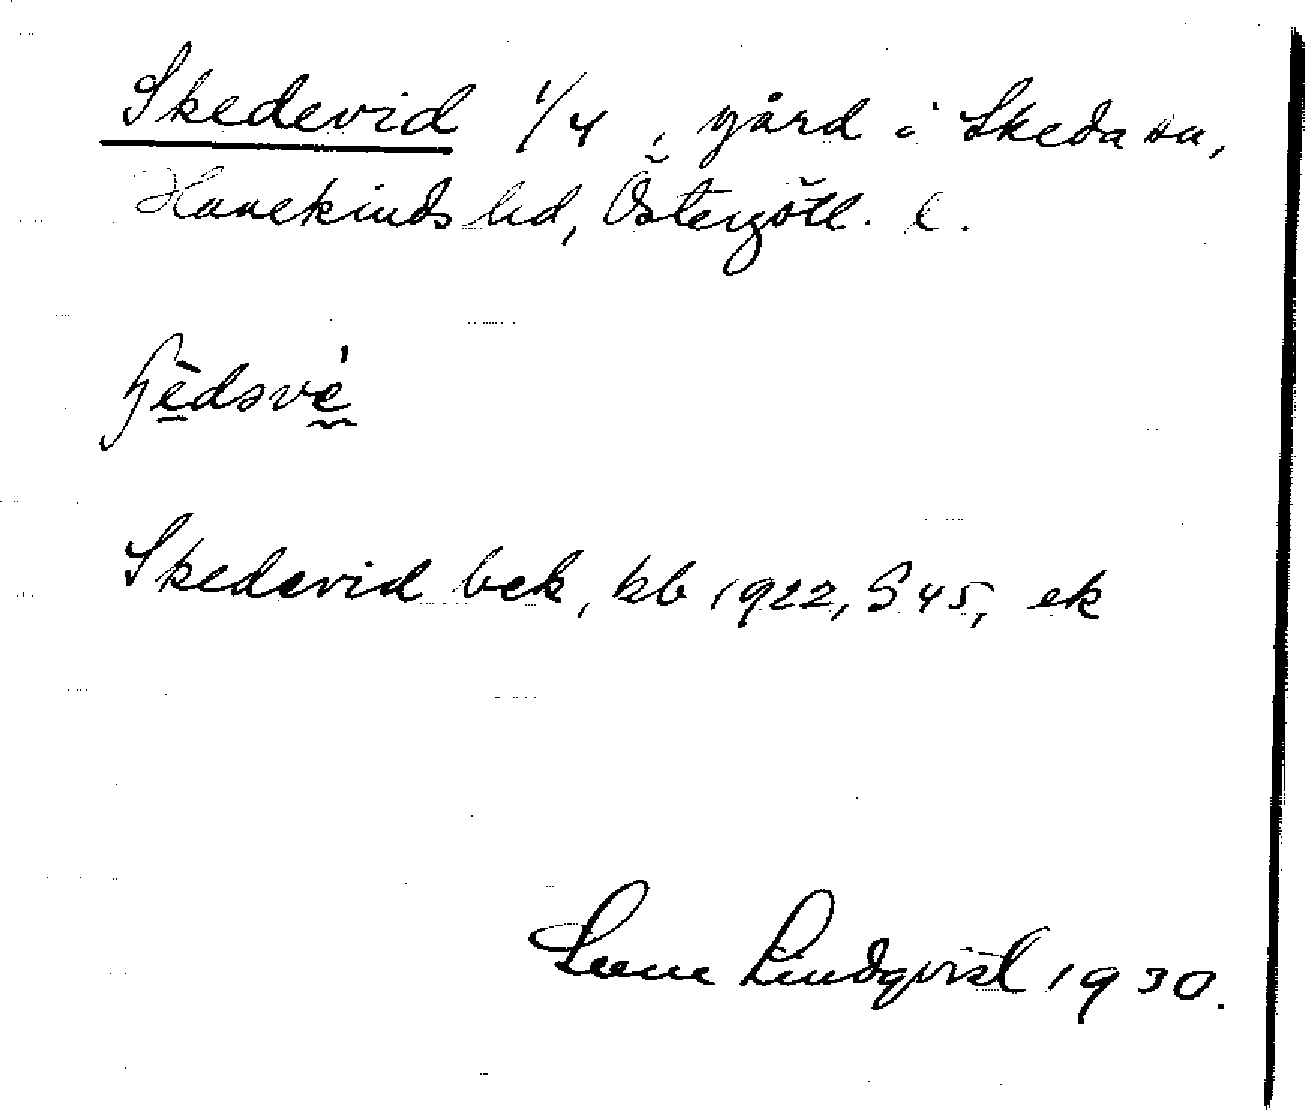 Skedevid 1/4, gård i Skeda sn,
Hanekinds hd, Östergötl. l.
Skedevid bek, kb 1922, S 45, ek
Lindqvist 1930.